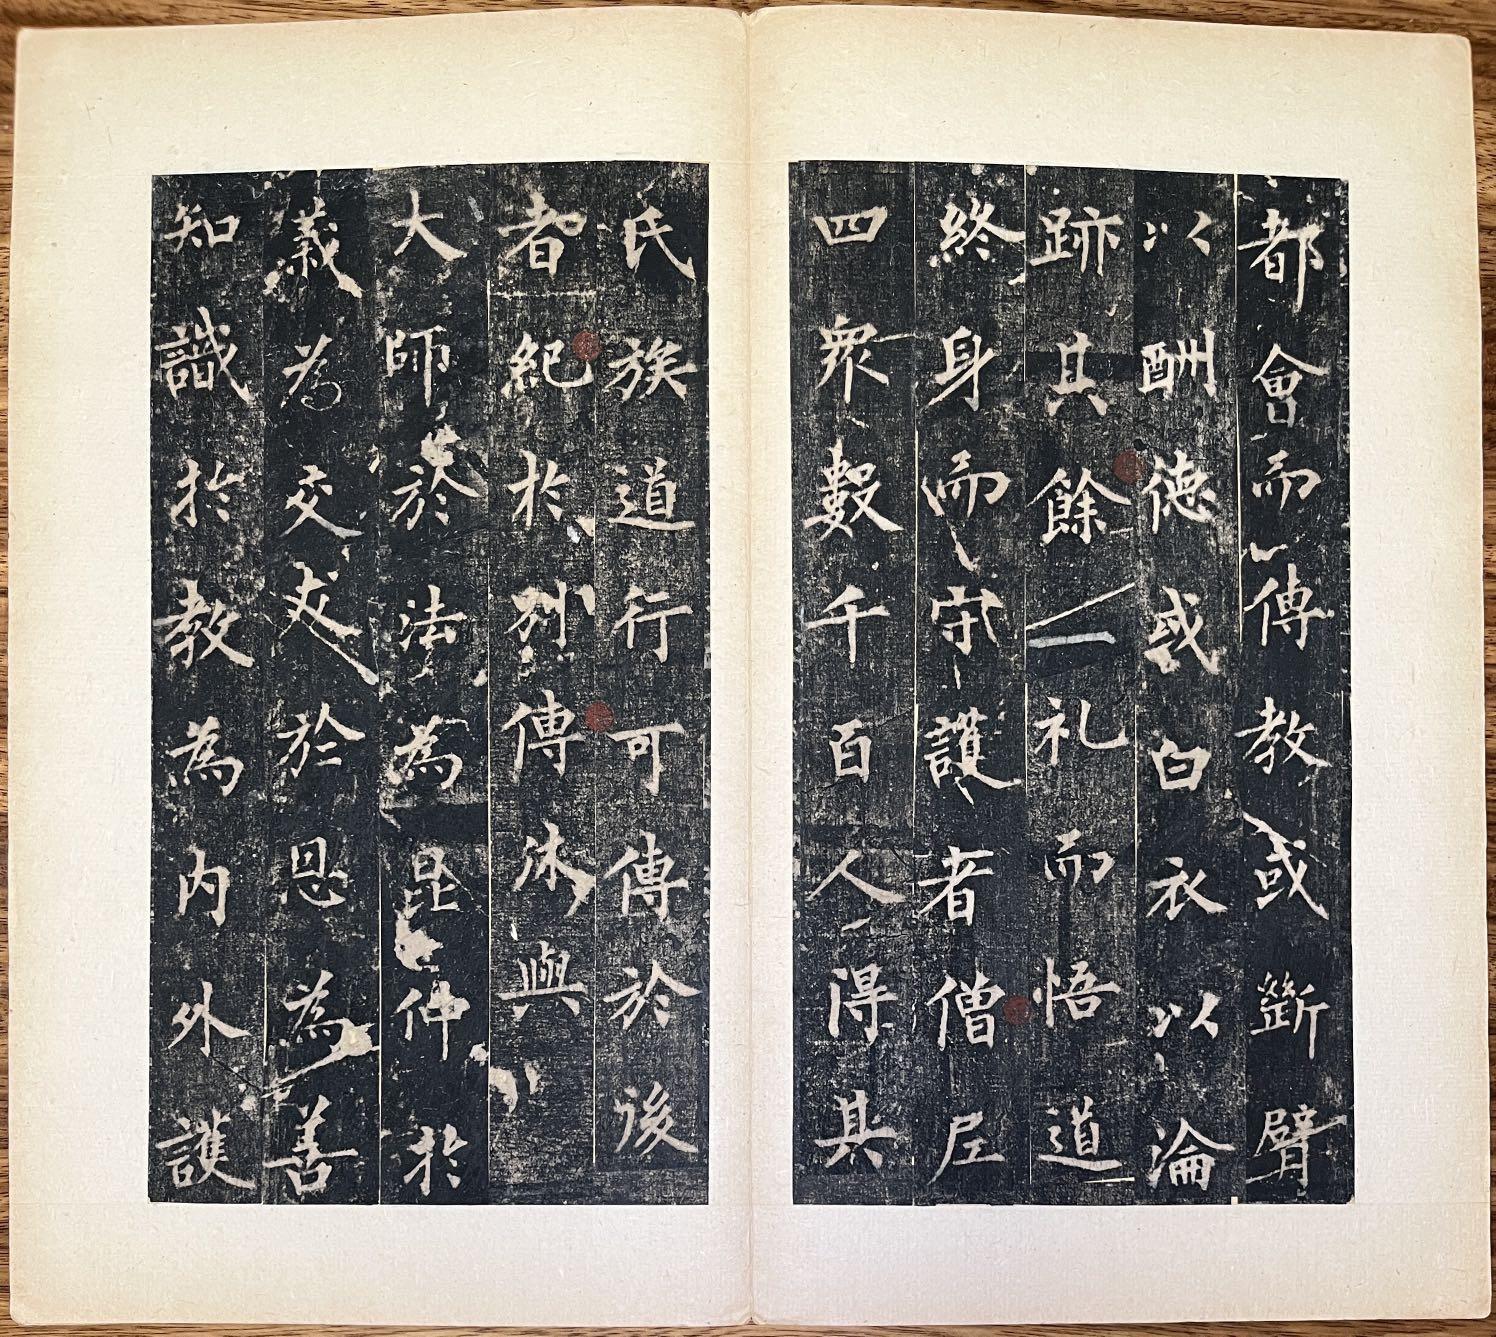 都會而傳教或斷臂
以酬德或白衣以淪
跡其餘一礼而悟道
終身而守護者僧尼
四衆數千百人得其
氏族道行可傳於後
者紀於別傳休與
大師於法為昆仲於
義為交友於恩為善
知識於教為內外護